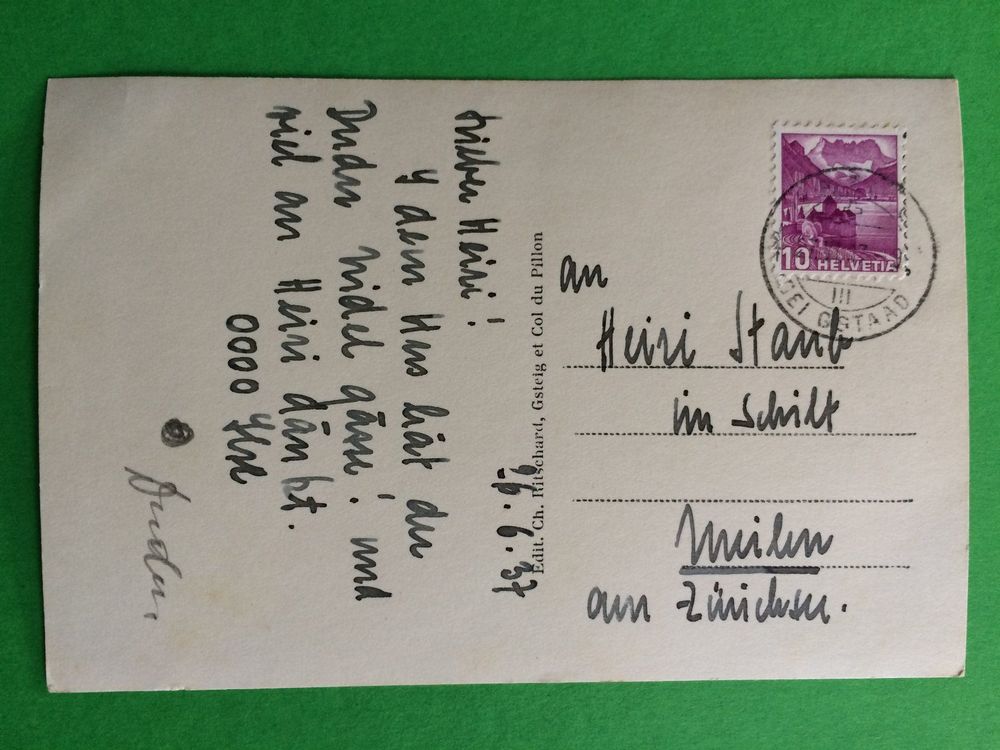 Lieber Heiri!
y dem Hus hät der
Dudu nidel gässe! und
viel an Heiri dänkt.
0000 Ilse
Dudu.
6. 37
Edit. Ch. Ritschard, Gsteig et Col du Pillon
10 HELVETIA
III
BEI GSTAAD
an
Heiri Staub
im Schilt
Meilen
am Zürichsee.